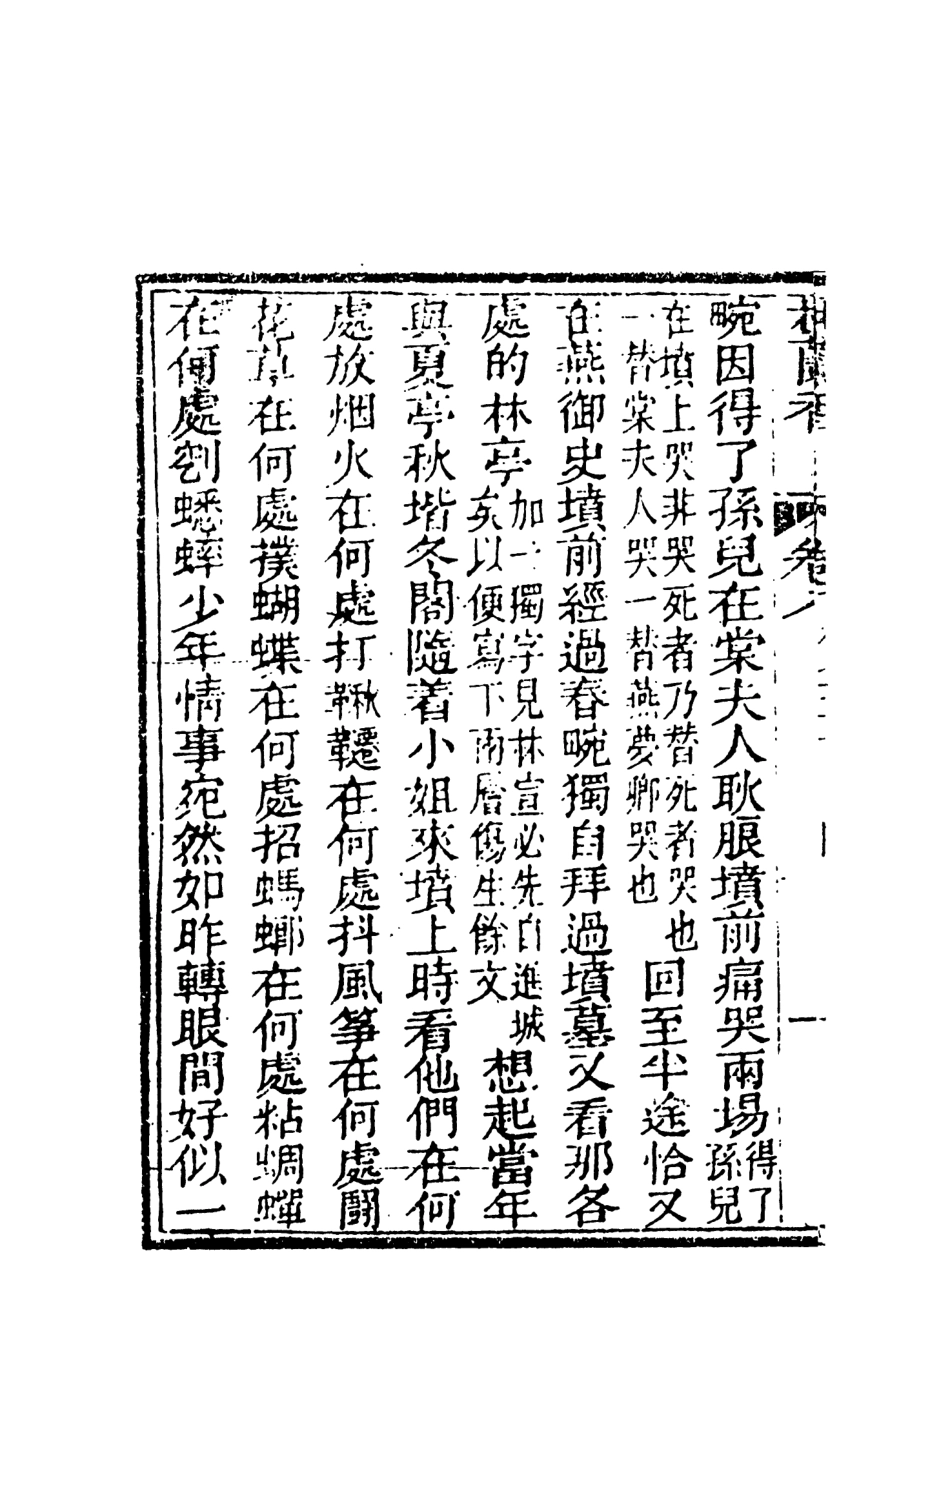 畹因得了孫兒在棠夫人耿服墳前痛哭兩場得了孫兒
在墳上哭非哭死者乃替死者哭也
一替棠夫人哭一替燕夢卿哭也
回至半途恰又
在燕御史墳前經過春畹獨自拜過墳墓又看那各
處的林亭
加一獨字見林宣必先自進城
矣以便寫下兩層傷生餘文
想起當年
與夏亭秋堦冬閣隨着小姐來墳上時看他們在何
處放烟火在何處打鞦韆在何處抖風筝在何處鬪
花草在何處撲蝴蝶在何處招螞螂在何處粘蜩蟬
在何處蟋蟀少年情事宛然如昨轉眼間好似一